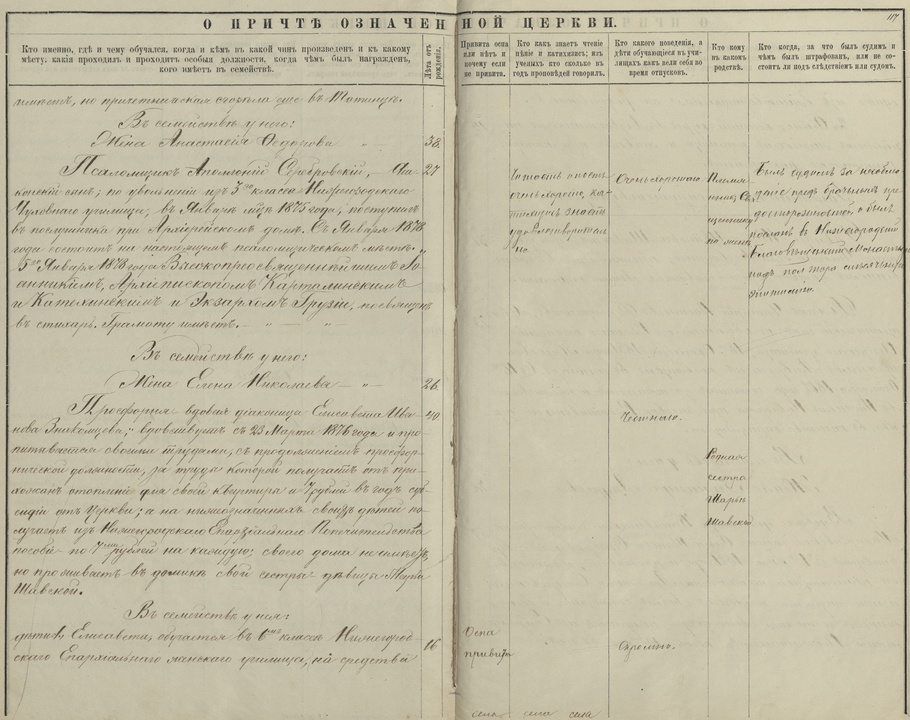 О ПРИЧТѢ ОЗНАЧЕННОЙ ЦЕРКВИ.
117
Кто именно, гдѣ и чему обучался, когда и кѣмъ въ какой чинъ произведенъ и къ какому
мѣсту. какія проходилъ и проходитъ особыя должности, когда чѣмъ былъ награжденъ,
кого имѣетъ въ семействѣ.
Лѣта отъ
рожденія.
Привита оспа
или нѣтъ и
почему если
не привита.
Кто какъ знаетъ чтеніе
пѣніе и катихизисъ; изъ
ученыхъ кто сколько въ
годъ проповѣдей говорилъ.
Кто какого поведенія, а
дѣти обучающіеся въ учи-
лищахъ какъ вели себя во
время отпусковъ.
Кто кому
въ какомъ
родствѣ.
Кто когда, за что былъ судимъ и
чѣмъ былъ штрафованъ, или не со-
стоитъ ли подъ слѣдствіемъ или судомъ.
имѣетъ, но причетническая сгорѣла еще въ
Въ семействѣ у него:
Жена Анастасія Ѳедорова
38.
Псаломщикъ Аполлоній Серебровскій, діа-
27
конскій сынъ; по увольненіи изъ 3го класса Нижегородскаго
Духовнаго училища, въ Январѣ мцѣ 1875 года, поступилъ
въ послушника при Архіерейскомъ домѣ. Съ Января 1878
года состоитъ на настоящемъ псаломщическомъ мѣстѣ.
5го Января 1878 года Высокопреосвященнѣйшимъ Іо-
анникіемъ, Архіепископомъ Карталинскимъ
и Кахетинскимъ и Экзархомъ Грузіи, посвященъ
въ стихарь. Грамоту имѣетъ.
Читаетъ и поетъ
очень хорошо, ка-
тихизисъ знаетъ
удовлетворитель
но.
Очень хорошаго.
Племян-
никъ Свя-
щеннику
по женѣ
Былъ судимъ за необхо
посланъ въ Нижегородскій
Благовѣщенскій Монастырь
подъ полтора мѣсячную
Эпитимію.
Въ семействѣ у него:
Жена Елена Николаева
26.
Просфорня вдовая діаконица Елисавета Ива-
40.
нова Знаменцева; вдовствуетъ съ 23 Марта 1876 года и про-
питывается своими трудами, съ продолженіемъ просфор-
нической должности, за труды которой получаетъ отъ при-
хожанъ отопленіе для своей квартиры и 7 рублей въ годъ суб-
сидіи отъ Церкви; а на нижеозначенныхъ своихъ дѣтей по-
лучаетъ изъ Нижегородскаго Епархіальнаго Попечительства
пособія по 7 рублей на каждую; своего дома не имѣетъ,
но проживаетъ въ домикѣ своей сестры дѣвицы Маріи
Шавской.
Честнаго.
Родная
сестра
Маріи
Шавской
Въ семействѣ у нея:
дѣти: Елисавета, обучается въ 6мъ классѣ Нижегород-
16
скаго Епархіальнаго женскаго училища, на средства
Оспа
привита
Скромнаго.